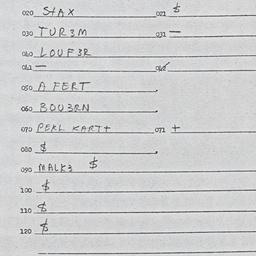 020 StAX 021 $
030 TUR3M 031 —
040 LOUF3R
041 — 042
050 A FERT
060 BOU3RN
070 PERL KART+ 071 +
080 $
090 MALK3 $
100 $
110 $
120 $